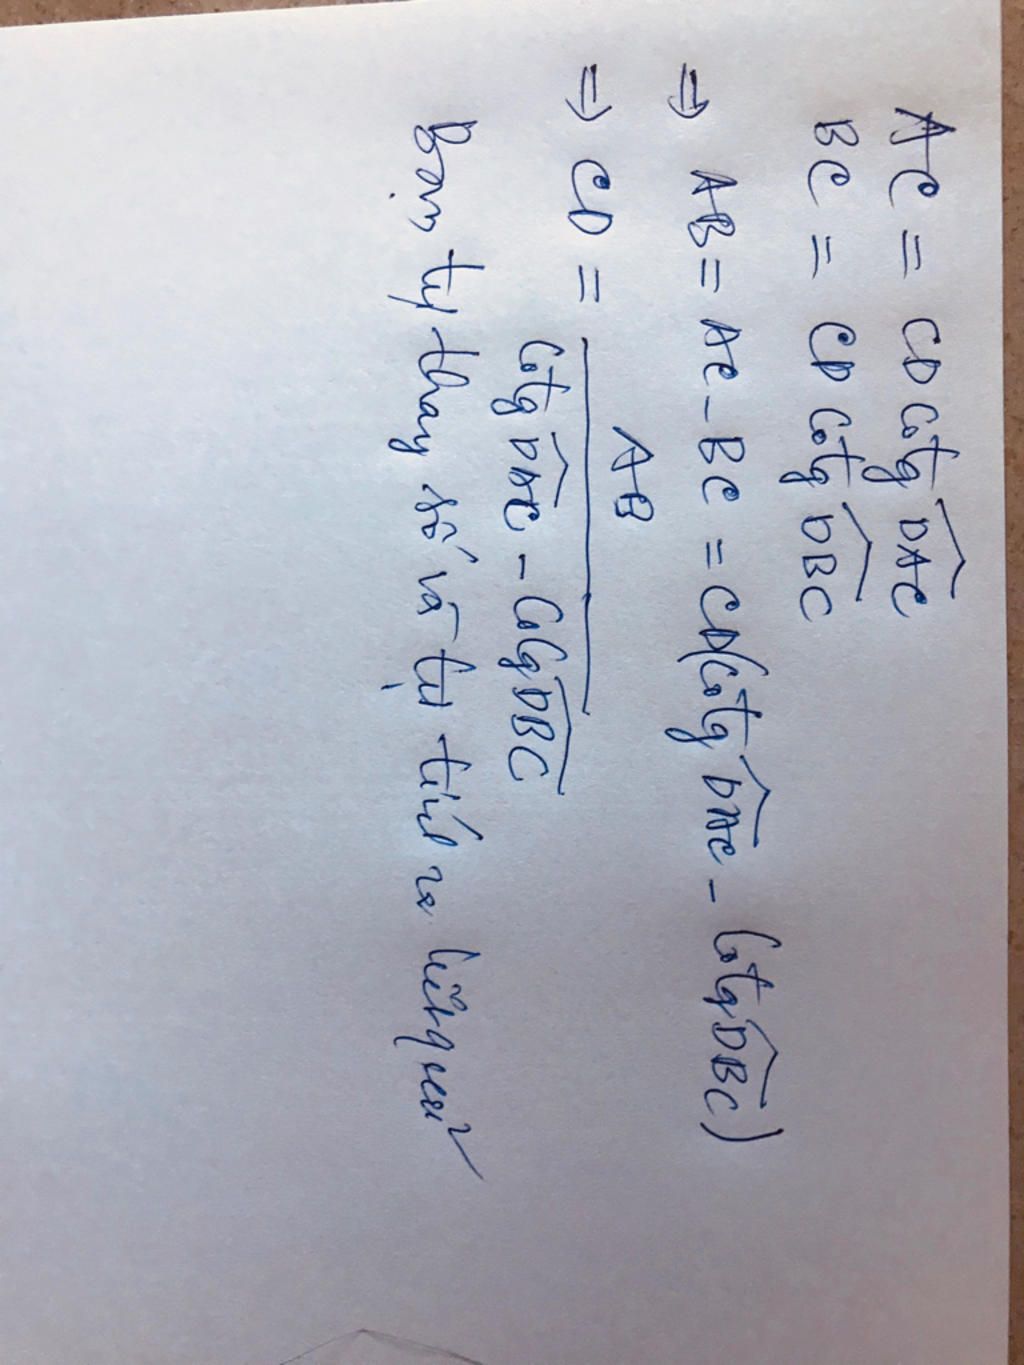 AC = CD Cotg DAC
BC = CD Cotg DBC
⇒ AB = AC - BC = CD(Cotg DAC - Cotg DBC)
⇒ CD = AB
Cotg DAC - Cotg DBC
Bạn tự thay số và tự tính ra kết quả